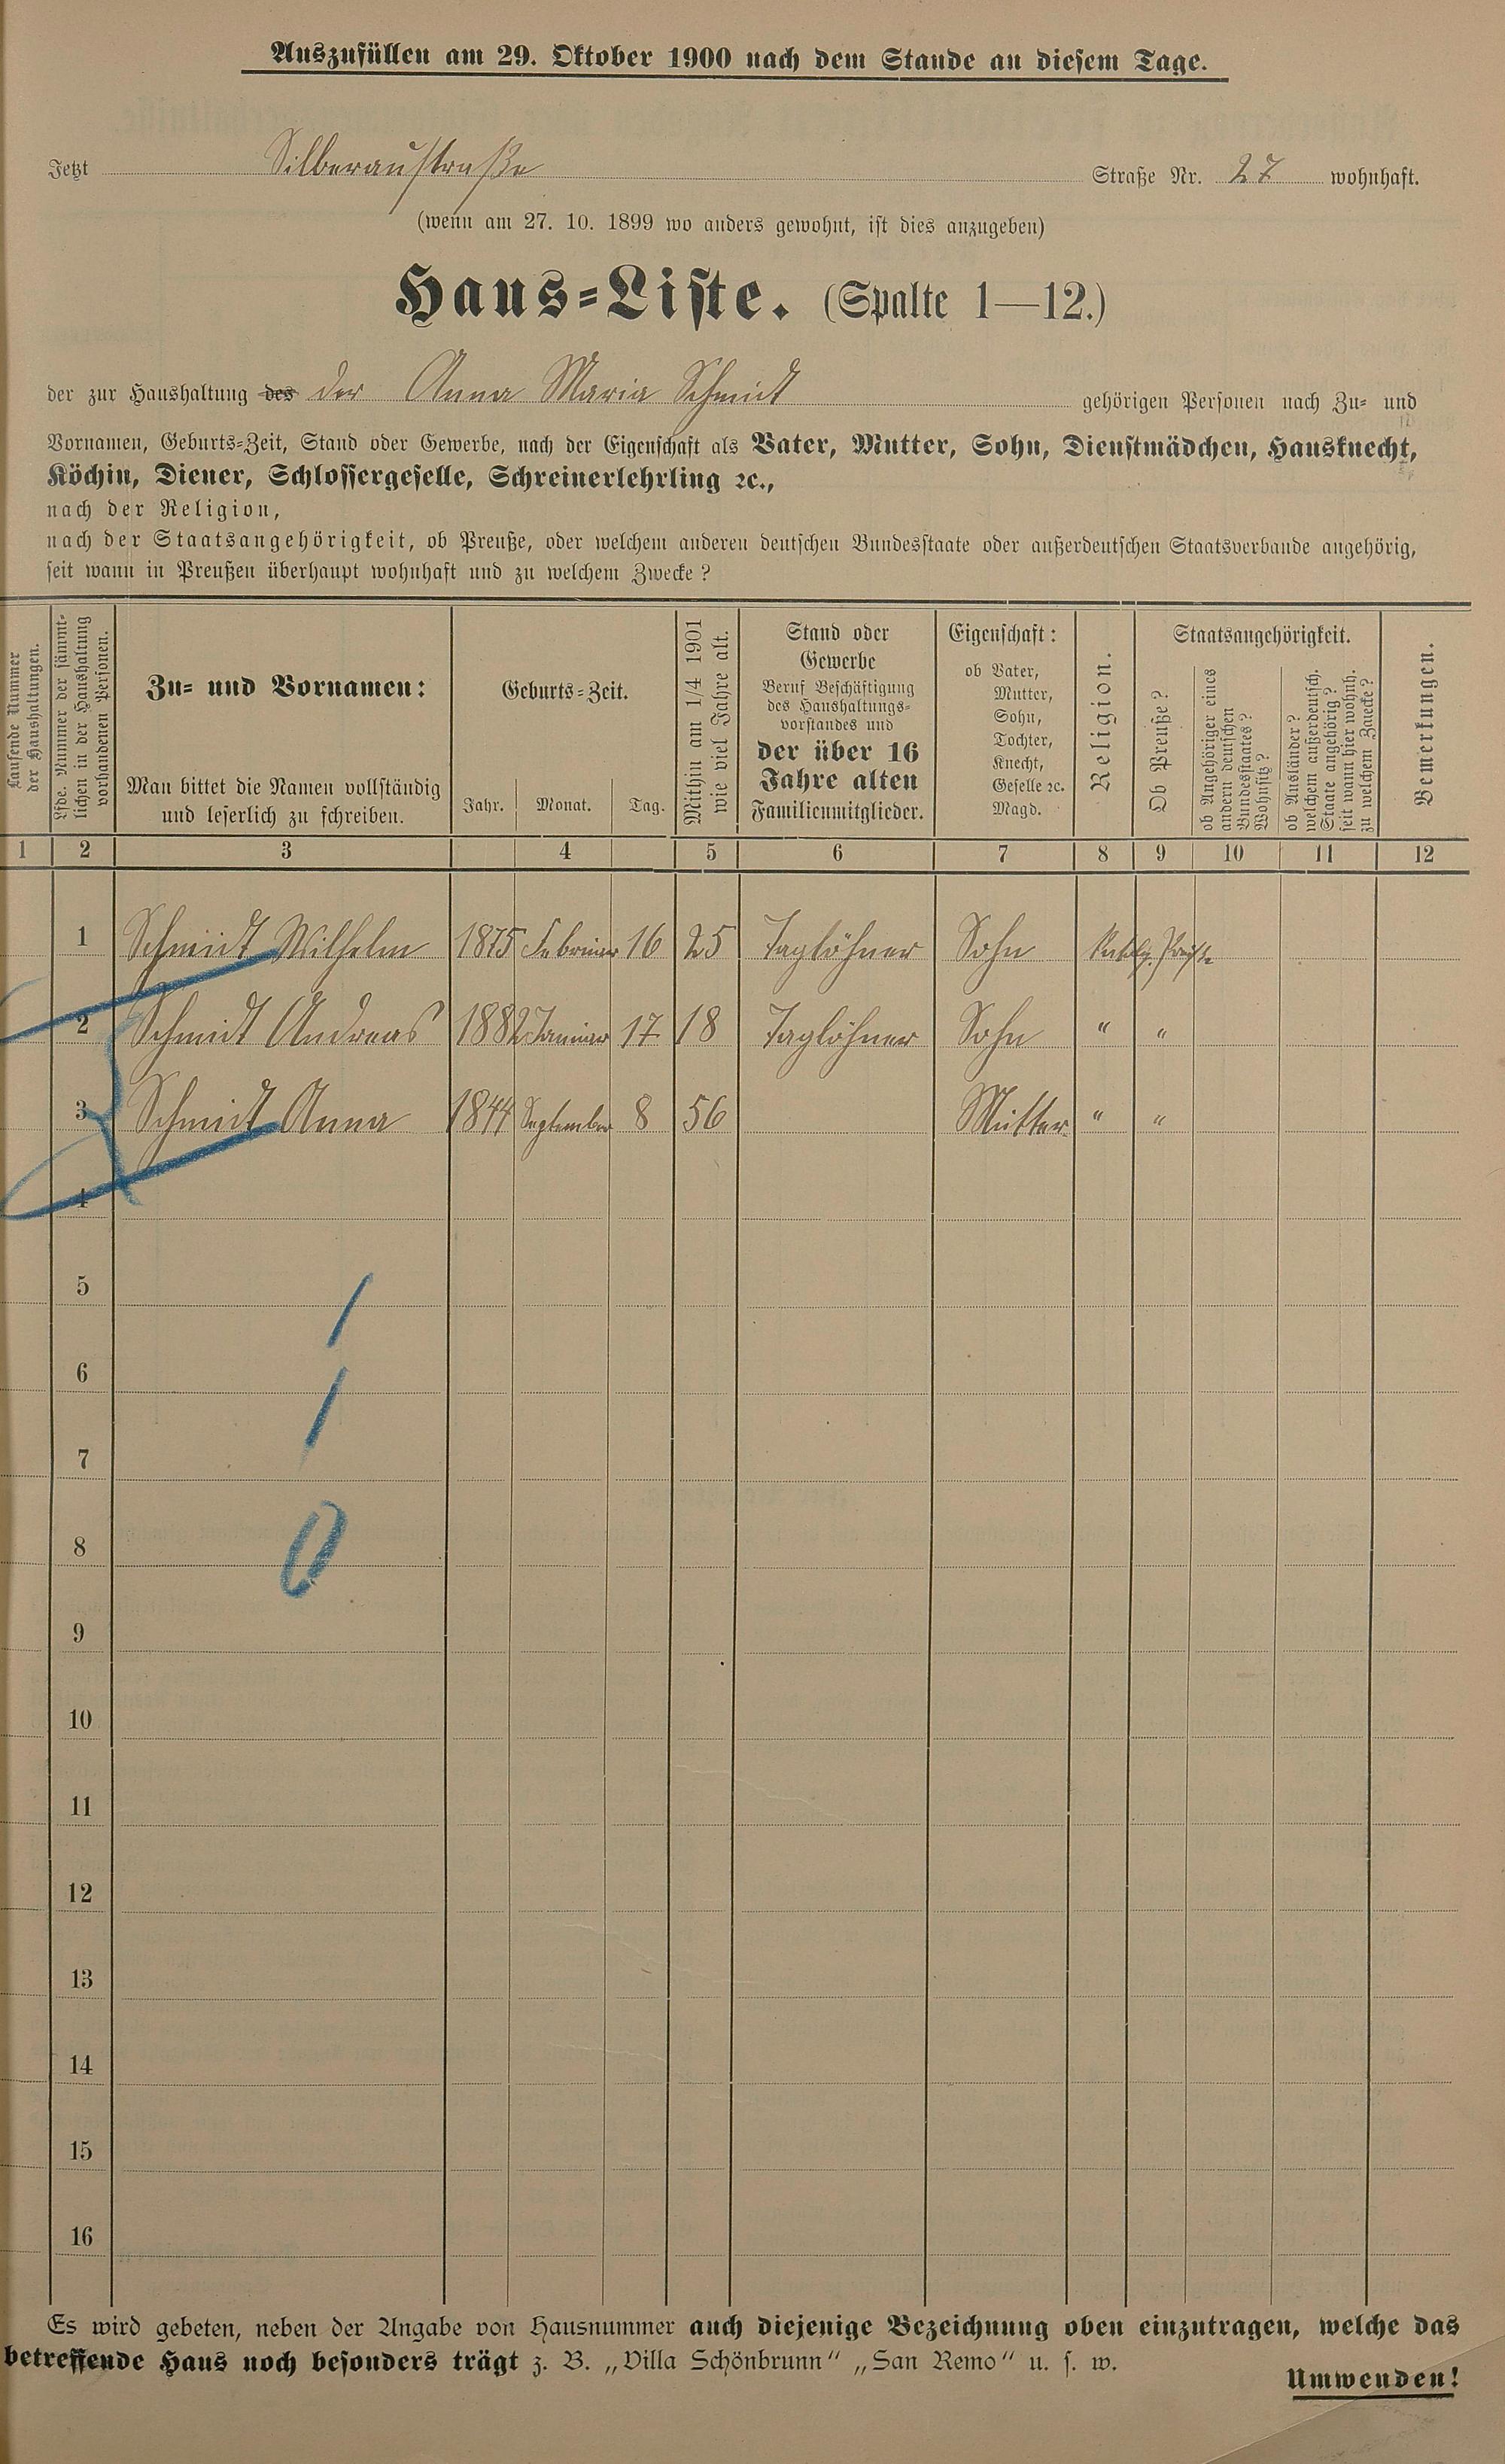 Auszufüllen am 29. Oktober 1900 nach dem Stande an diesem Tage.
Jetzt Silberaustraße Straße Nr. 27 wohnhaft.
(wenn am 27. 10. 1899 wo anders gewohnt, ist dies anzugeben)
Haus-Liste. (Spalte 1—12.)
der zur Haushaltung des der Anna Maria Schmidt gehörigen Personen nach Zu- und
Vornamen, Geburts-Zeit, Stand oder Gewerbe, nach der Eigenschaft als Vater, Mutter, Sohn, Dienstmädchen, Hausknecht,
Köchin, Diener, Schlossergeselle, Schreinerlehrling ꝛc.,
nach der Religion,
nach der Staatsangehörigkeit, ob Preuße, oder welchem anderen deutschen Bundesstaate oder außerdeutschen Staatsverbande angehörig,
seit wann in Preußen überhaupt wohnhaft und zu welchem Zwecke?
Laufende Nummer
der Haushaltungen.
Lfde. Nummer der sämmt-
lichen in der Haushaltung
vorhandenen Personen.
Zu- und Vornamen:
Man bittet die Namen vollständig
und leserlich zu schreiben.
Geburts-Zeit.
Jahr. Monat. Tag.
Mithin am 1/4 1901
wie viel Jahre alt.
Stand oder
Gewerbe
Beruf Beschäftigung
des Haushaltungs-
vorstandes und
der über 16
Jahre alten
Familienmitglieder.
Eigenschaft:
ob Vater,
Mutter,
Sohn,
Tochter,
Knecht,
Geselle ꝛc.
Magd.
Religion.
Staatsangehörigkeit.
Ob Preuße?
ob Angehöriger eines
andern deutschen
Bundesstaates?
Wohnsitz?
ob Ausländer?
welchem außerdeutsch.
Staate angehörig?
seit wann hier wohnh.
zu welchem Zwecke?
Bemerkungen.
1 2 3 4 5 6 7 8 9 10 11 12
1 Schmidt Wilhelm 1875 Februar 16 25 Taglöhner Sohn
2 Schmidt Andreas 1882 Januar 17 18 Taglöhner Sohn " "
3 Schmidt Anna 1844 September 8 56 Mutter " "
4
5
6
7
8
9
10
11
12
13
14
15
16
Es wird gebeten, neben der Angabe von Hausnummer auch diejenige Bezeichnung oben einzutragen, welche das
betreffende Haus noch besonders trägt z. B. „Villa Schönbrunn“ „San Remo“ u. s. w.
Umwenden!